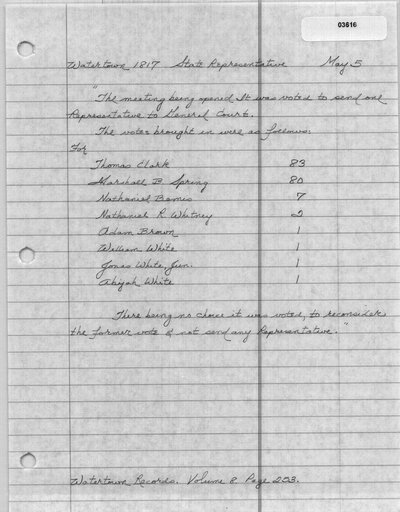 03616
Watertown 1817 State Representative May 5
"The meeting being opened It was voted to send one
Representative to General Court.
The votes brought in were as follows:
For
Thomas Clark 83
Marshall B Spring 80
Nathaniel Bemis 7
Nathaniel R Whitney 2
Adam Brown 1
William White 1
Jonas White, Jun. 1
Abijah White 1
There being no choice it was voted, to reconsider
the former vote & not send any Representative."
Watertown Records. Volume 8 Page 203.